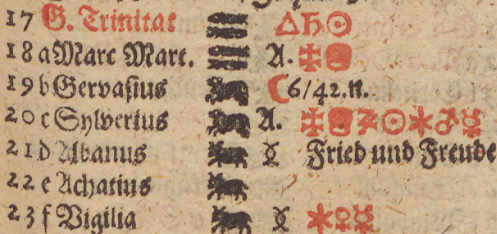 17 G. Trinitat △♄☉
18 a Marc Marc. A.
19 b Gervasius ☾ 6/42. n.
20 c Sylverius A. ☉ ✶ ♂ ☿
21 d Albanus Fried und Freude
22 e Achatius
23 f Vigilia ✶ ♀ ☿